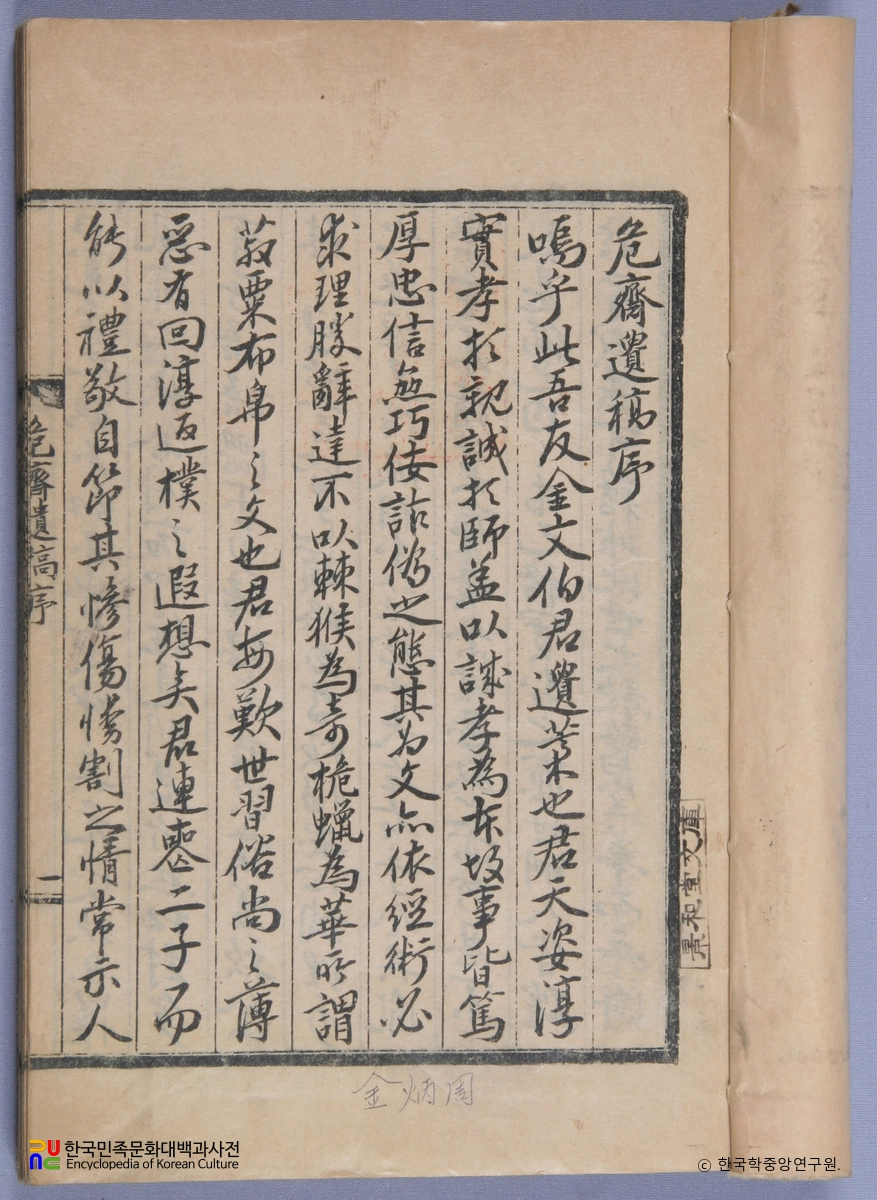 危齋遺稿序
嗚乎此吾友金文伯君遺藁也君天姿淳
實孝於親誠於師盖以誠孝為本故事皆篤
厚忠信無巧佞詐偽之態其为文亦依經術必
求理勝辭達不以棘猴為奇桅蠟為華所謂
菽粟布帛之文也君每歎世習俗尚之薄
惡有回淳返樸之遐想矣君連喪二子而
能以禮敬自節其慘傷情割之情常示人
危齋遺稿序
一
景和堂文庫
金炳周
한국민족문화대백과사전
Encyclopedia of Korean Culture
© 한국학중앙연구원.